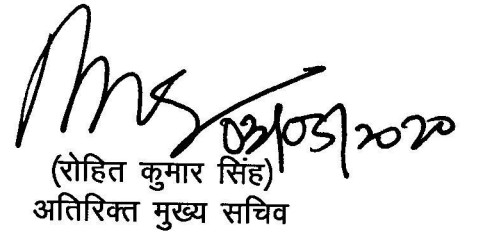 03/05/2020
(रोहित कुमार सिंह)
अतिरिक्त मुख्य सचिव